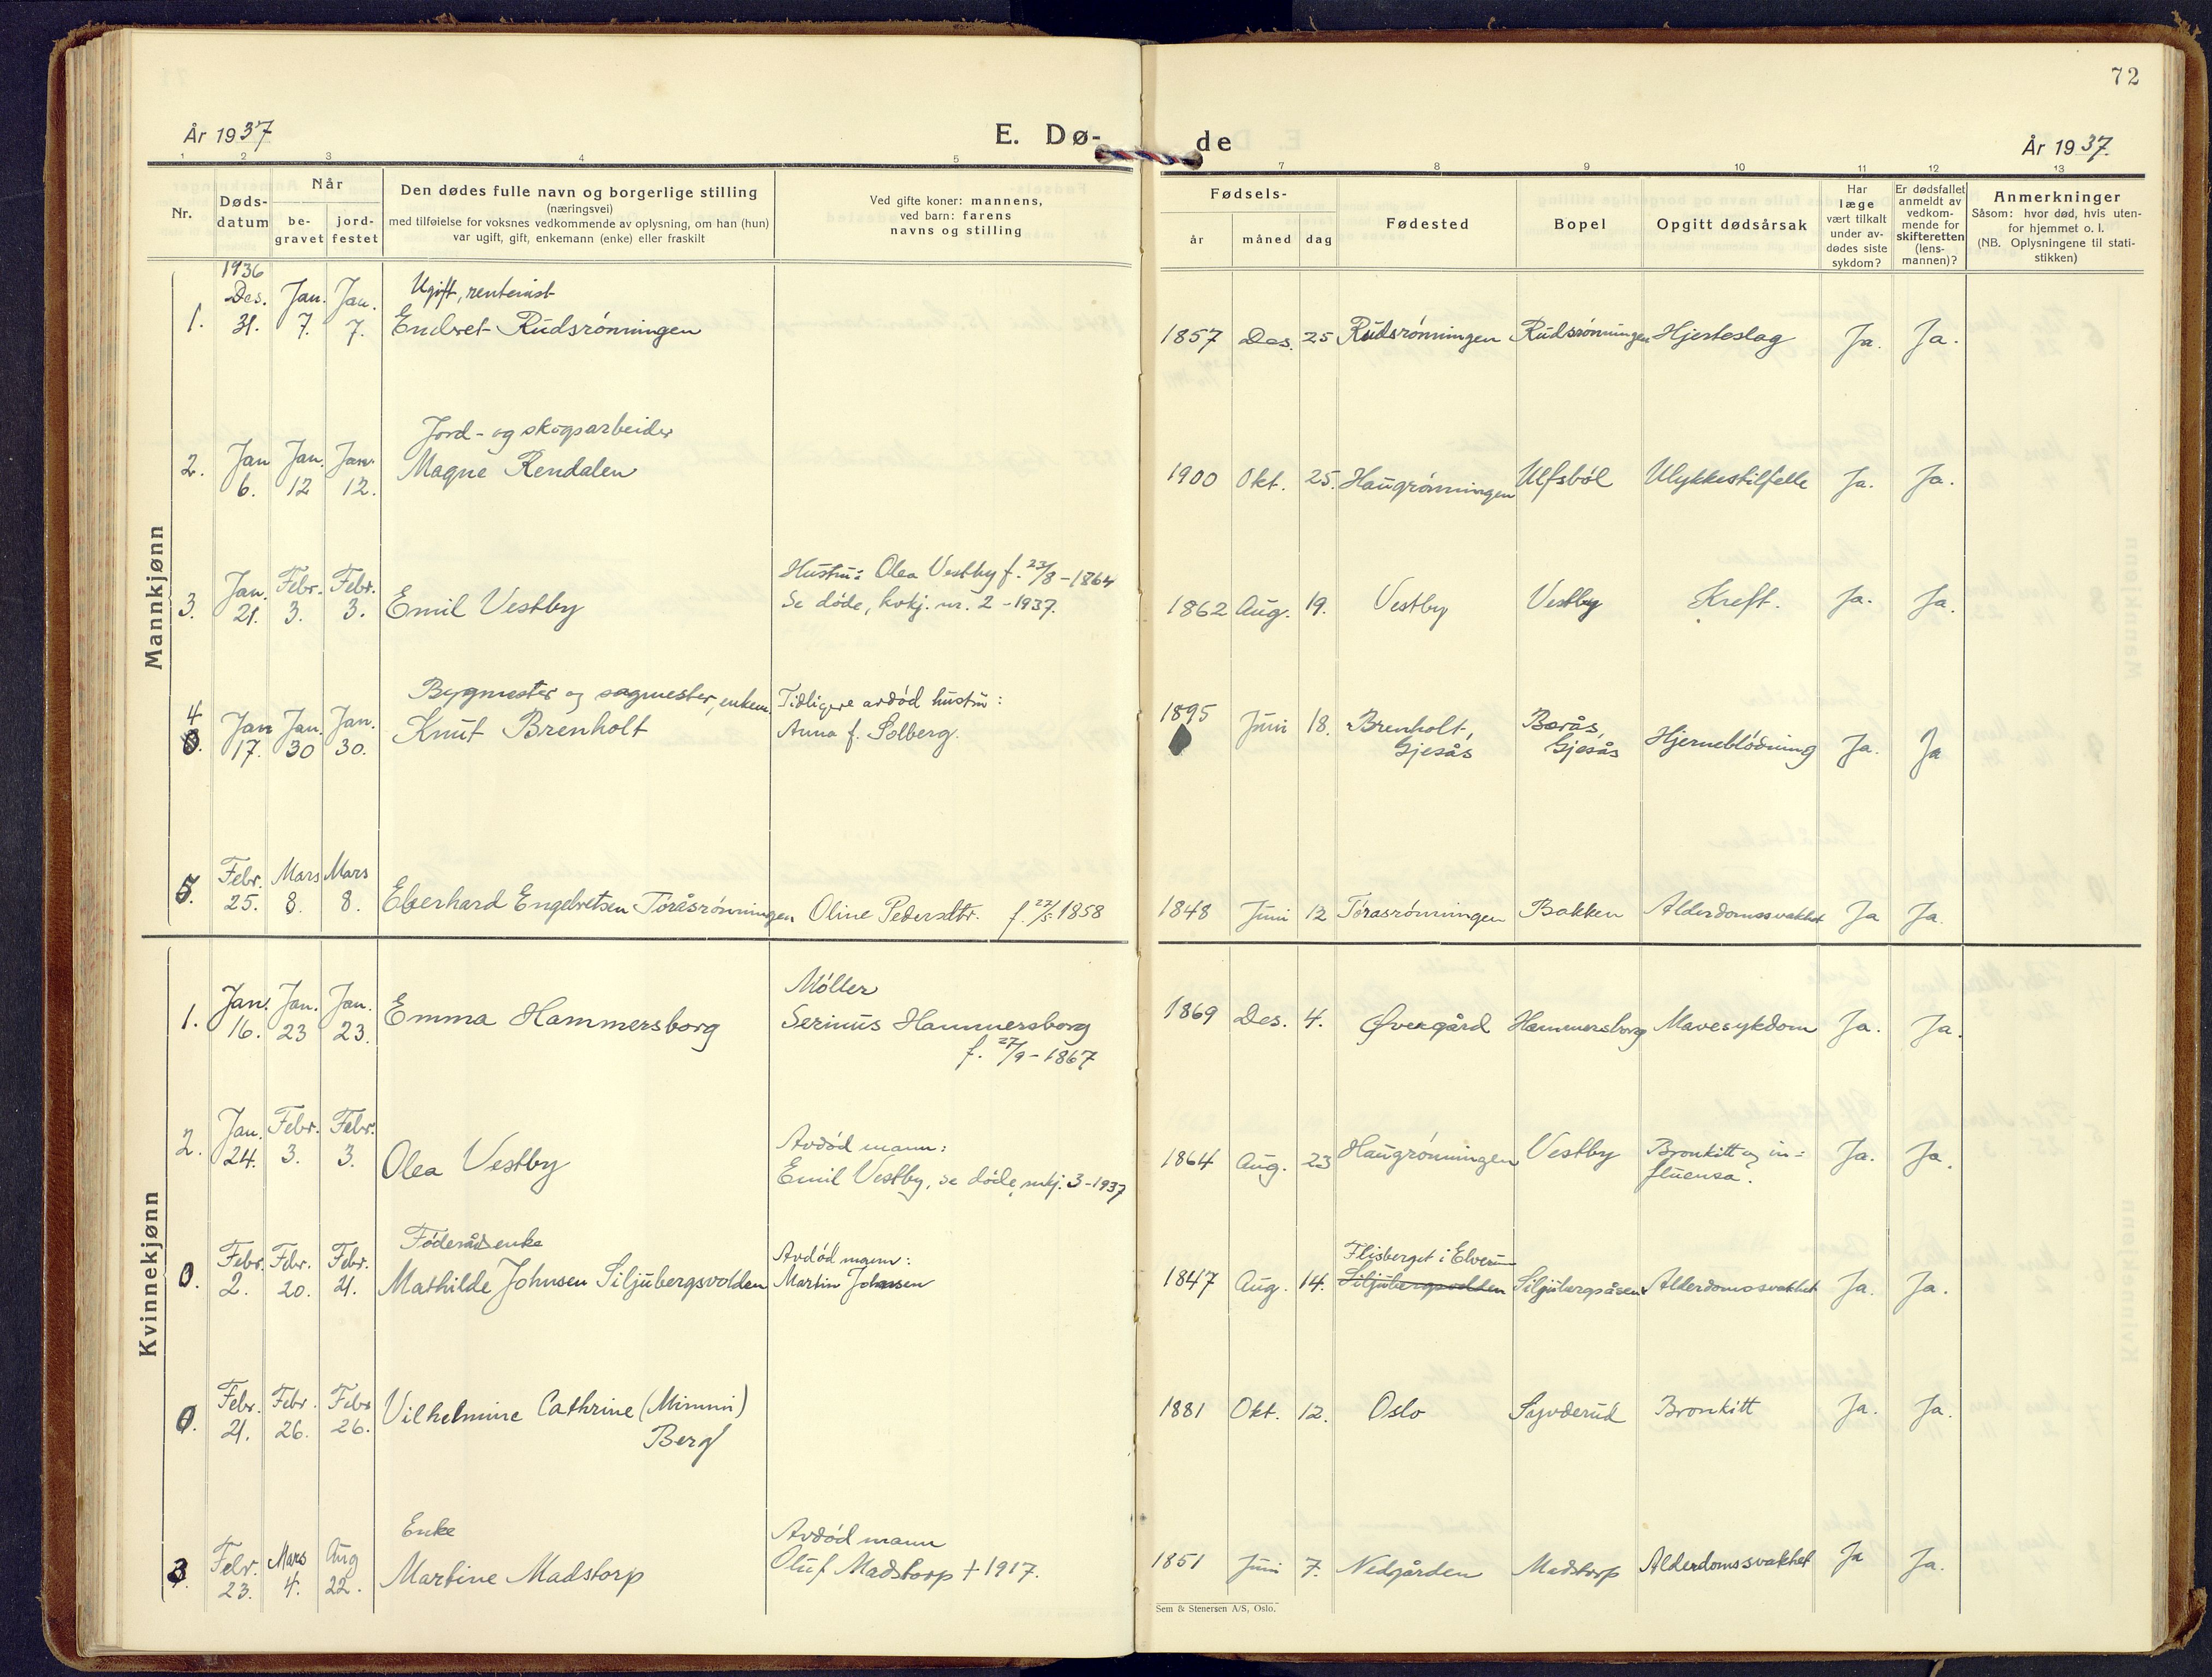 72
År 1937
E. Dø-
de
År 1937.
1 2 3 4 5 7 8 9 10 11 12 13
Nr.
Døds-
datum
Når
be-
gravet
jord-
festet
Den dødes fulle navn og borgerlige stilling
(næringsvei)
med tilføielse for voksnes vedkommende av oplysning, om han (hun)
var ugift, gift, enkemann (enke) eller fraskilt
Ved gifte koner: mannens,
ved barn: farens
navns og stilling
Fødsels-
år måned dag
Fødested
Bopel
Opgitt dødsårsak
Har
læge
vært tilkalt
under av-
dødes siste
sykdom?
Er dødsfallet
anmeldt av
vedkom-
mende for
skifteretten
(lens-
mannen)?
Anmerkninger
Såsom: hvor død, hvis uten-
for hjemmet o. l.
(NB. Oplysningene til stati-
stikken)
Mannkjønn
1936
Des. Jan. Jan. Ugift, rentenist
1. 31. 7. 7. Endret Rudsrønningen 1857 Des. 25 Rudsrønningen Rudsrønningen Hjerteslag Ja. Ja.
Jord- og skogsarbeider
2. Jan 6. Jan. 12 Jan. 12. Magne Rendalen 1900 Okt. 25. Haugrønningen Ulfsbøl Ulykkestilfelle Ja. Ja.
Hustru: Olea Vestby f. 23/8-1864
3. Jan. 21. Febr. 3. Febr. 3. Emil Vestby Se døde, kvkj. nr. 2-1937. 1862 Aug. 19. Vestby Vestby Kreft. Ja. Ja.
Bygmester og sagmester, enkem. Tidligere avdød hustru:
4 Jan 17. Jan. 30 Jan. 30. Knut Brenholt Anna f. Solberg. 1895 Juni 18. Brenholt, Gjesås Gjesås Hjerneblødning Ja. Ja
5. Febr. 25. Mars 8. Mars 8. Eberhard Engebretsen Toråsrønningen Oline Pedersdtr. f. 22/5 1858 1848 Juni 12 Toråsrønningen Bakken Alderdomssvakhet Ja Ja.
Kvinnekjønn
Møller
1. Jan. 16. Jan. 23 Jan. 23. Emma Hammersborg Serinus Hammersborg 1869 Des. 4. Øvergård Hammersborg Mavesykdom Ja. Ja.
f. 27/9-1867
Avdød mann:
2. Jan. 24. Febr. 3. Febr. 3. Olea Vestby Emil Vestby, se døde, mkj. 3-1937 1864 Aug. 23 Haugrønningen Vestby Bronkitt og in-
fluensa. Ja. Ja.
Føderådsenke Avdød mann: Flisberget i Elverum
0. Febr. 2. Febr. 20. Febr. 21. Mathilde Johnsen Siljubergsvolden Martin Johansen 1847 Aug. 14. Siljubergsvolden Siljubergsåsen Alderdomssvakhet Ja. Ja.
0. Febr. 21. Febr. 26. Febr 26. Vilhelmine Cathrine (Mimmi)
Berg 1881 Okt. 12. Oslo Bronkitt Ja. Ja.
Enke Avdød mann
3. Febr. 23. Mars 4. Aug 22. Martine Madstorp Oluf Madstorp + 1917. 1851 Juni 7. Nedgården Madstorp Alderdomssvakhet Ja Ja.
Sem & Stenersen A/S, Oslo.